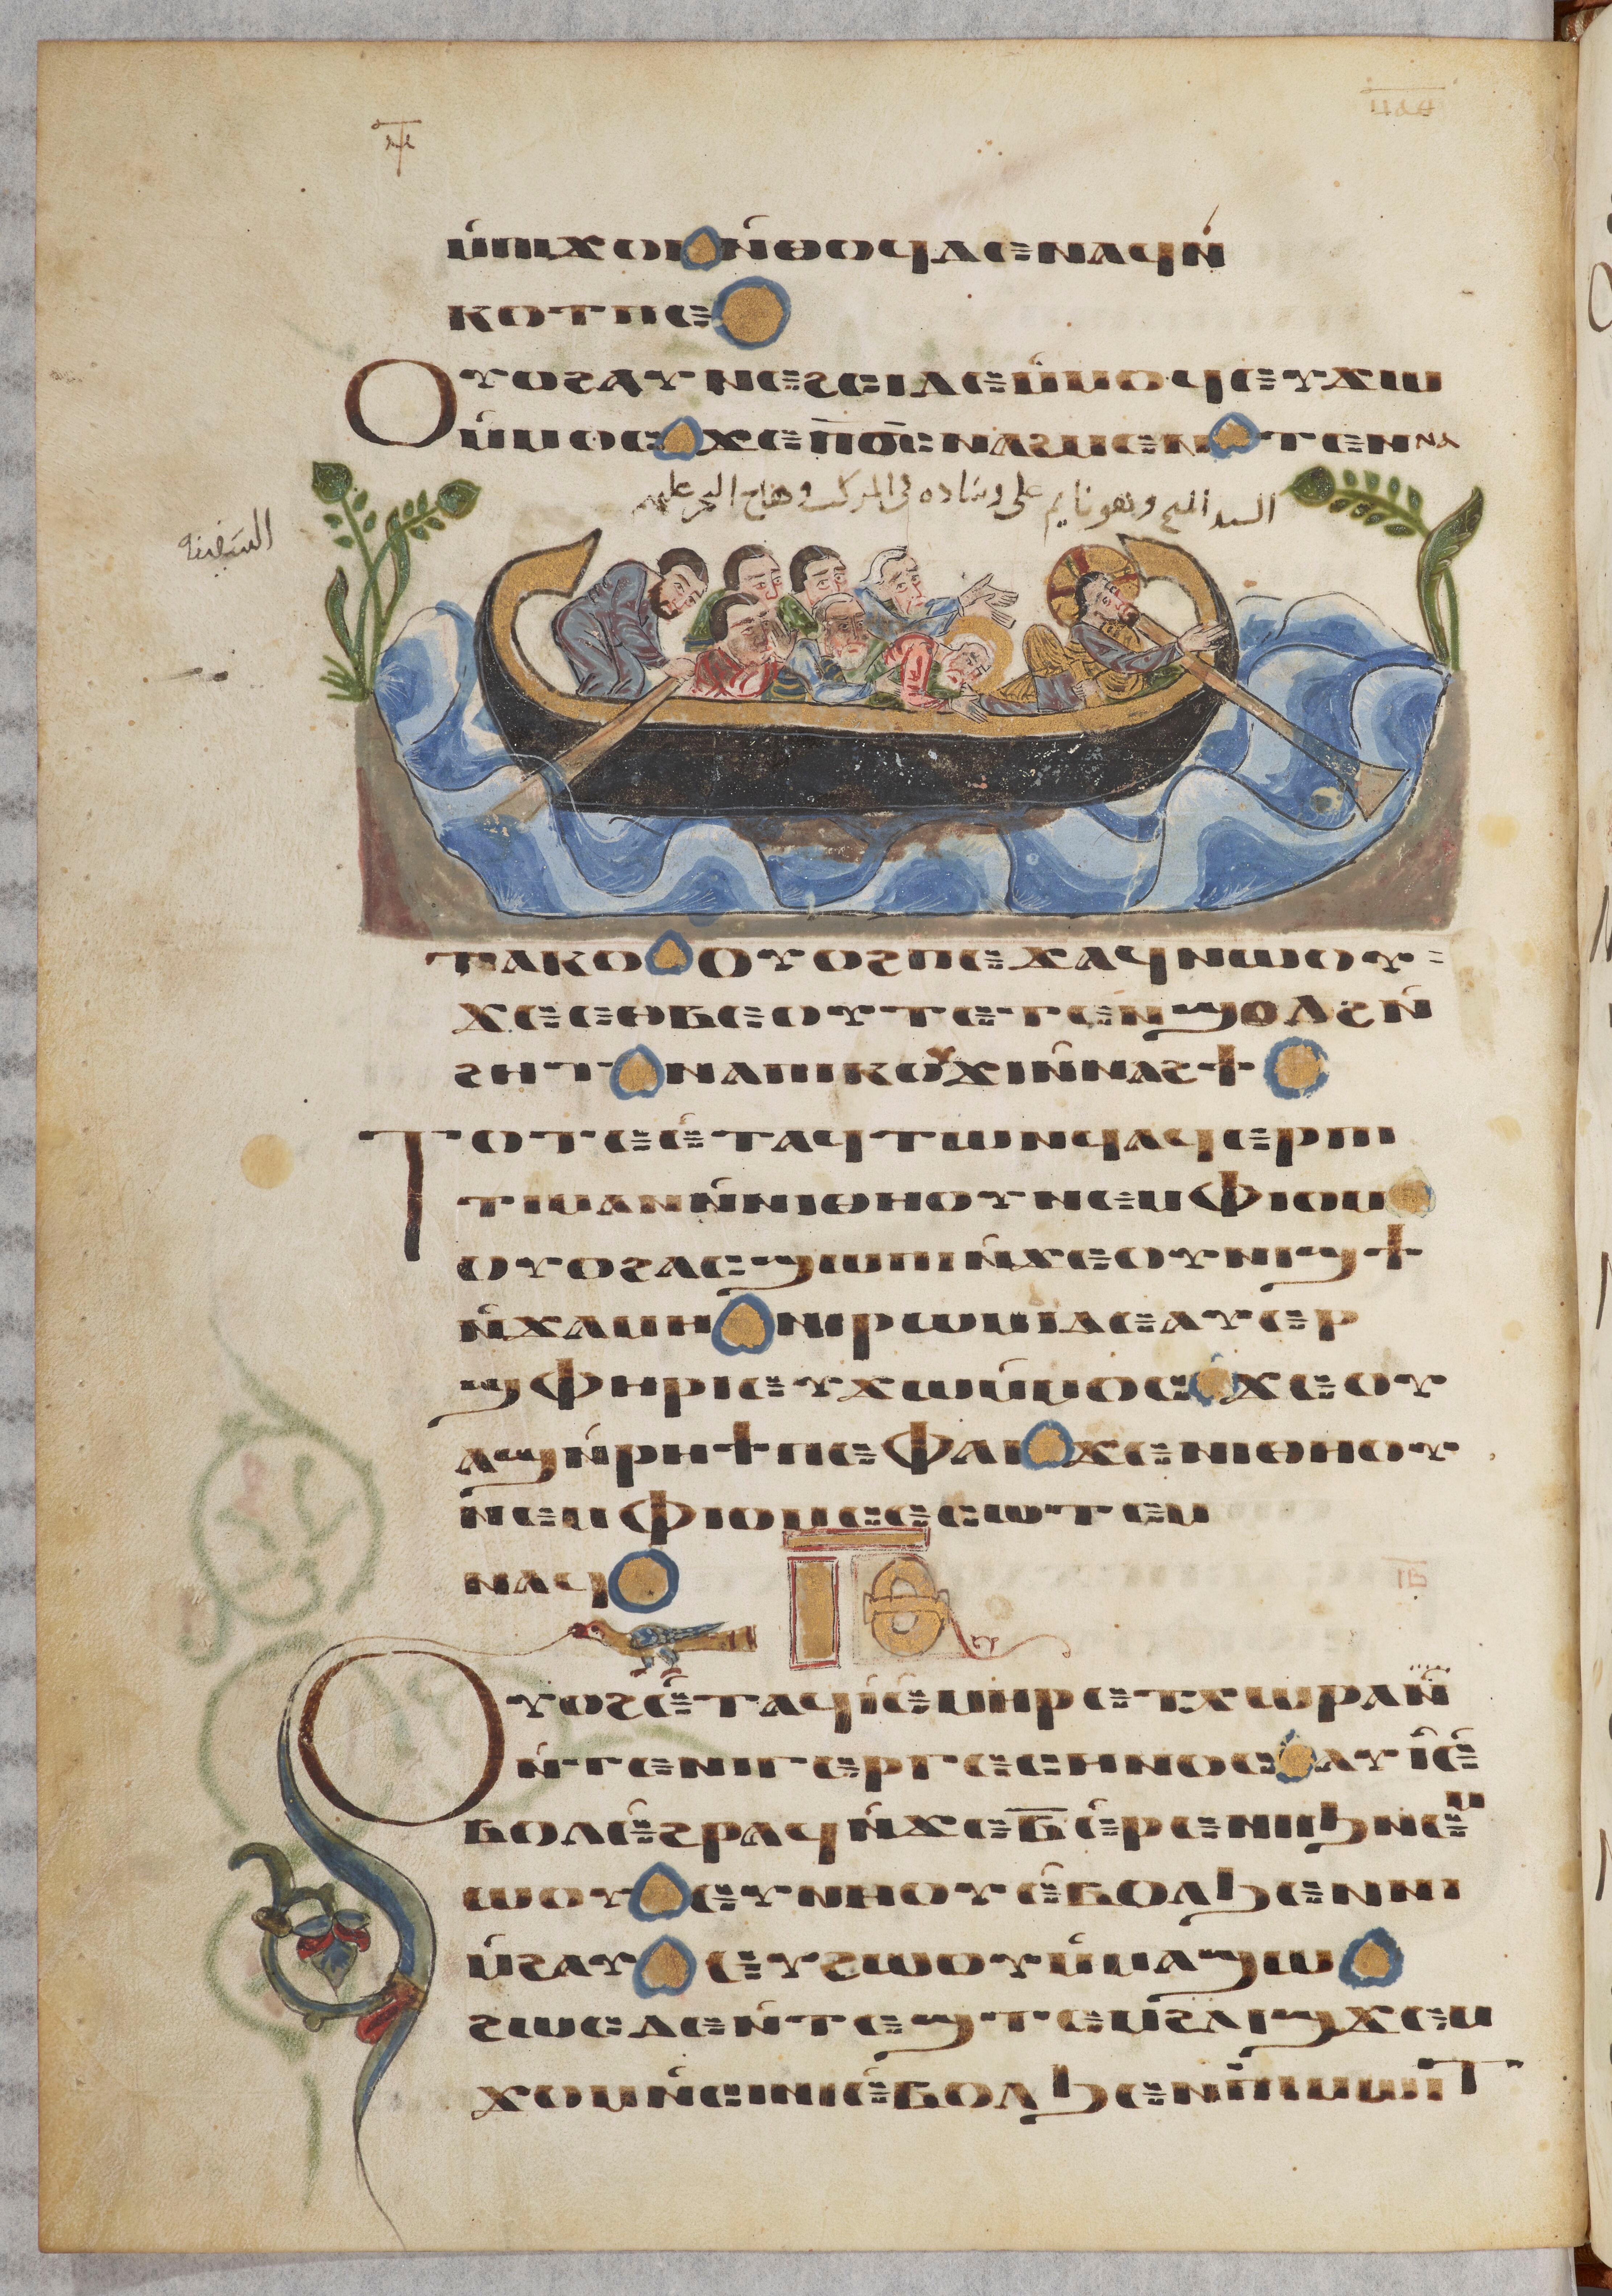 ⲙ̇ⲡⲓϫⲟⲓ ⲛ̇ⲑⲟϥ ⲇⲉ ⲛⲁϥⲛ̇
ⲕⲟⲧ ⲡⲉ
Ⲟⲩⲟϩ ⲁⲩⲛⲉϩⲥⲓ ⲇⲉ ⲙ̇ⲙⲟϥ ⲉⲩϫⲱ
ⲙ̇ⲙⲟⲥ ϫⲉ ⲡ̅ⲟ̅ⲥ̅ ⲛⲁϩⲙⲉⲛ ⲧⲉⲛⲛⲁ
السيد المسيح وهو نايم على وساده في المركب وهاج البحر عليهم
السفينه
ⲧⲁⲕⲟ Ⲟⲩⲟϩ ⲡⲉϫⲁϥ ⲛⲱⲟⲩ
ϫⲉ ⲉⲑⲃⲉⲟⲩ ⲧⲉⲧⲉⲛϣⲟⲗϩ ⲛ̇
ϩⲏⲧ ⲛⲁ ⲡⲓⲕⲟⲩϫⲓ ⲛ̇ⲛⲁϩϯ
Ⲧⲟⲧⲉ ⲉ̇ⲧⲁϥⲧⲱⲛϥ ⲁϥⲉⲣⲉⲡⲓ
ⲧⲓⲙⲁⲛ ⲛ̇ⲛⲓⲑⲏⲟⲩ ⲛⲉⲙ ⲫⲓⲟⲙ
ⲟⲩⲟϩ ⲁⲥϣⲱⲡⲓ ⲛ̇ϫⲉ ⲟⲩⲛⲓϣϯ
ⲛ̇ϫⲁⲙⲏ ⲛⲓⲣⲱⲙⲓ ⲇⲉ ⲁⲩⲉⲣ
ϣⲫⲏⲣⲓ ⲉⲩϫⲱ ⲙ̇ⲙⲟⲥ ϫⲉ ⲟⲩ
ⲁϣ ⲛ̇ⲣⲏϯ ⲡⲉ ⲫⲁⲓ ϫⲉ ⲛⲓⲑⲏⲟⲩ
ⲛⲉⲙ ⲫⲓⲟⲙ ⲥⲉⲥⲱⲧⲉⲙ
ⲛⲁϥ
ⲓ̅ⲃ̅
Ⲟⲩⲟϩ ⲉ̇ⲧⲁϥⲓ̇ ⲉ̇ⲙⲏⲣ ⲉⲧⲭⲱⲣⲁ ⲛ̇
ⲛ̇ⲧⲉ ⲛⲓⲅⲉⲣⲅⲉⲥⲏⲛⲟⲥ ⲁⲩⲓ̇ ⲉ̇
ⲃⲟⲗ ⲉ̇ϩⲣⲁϥ ⲛ̇ϫⲉ ⲃ̅ ⲉ̇ⲣⲉ ⲛⲓⲓϧ ⲛⲉⲙ
ⲱⲟⲩ ⲉⲩⲛⲏⲟⲩ ⲉ̇ⲃⲟⲗϧⲉⲛ ⲛⲓ
ⲙ̇ϩⲁⲩ ⲉⲩϩⲱⲟⲩ ⲙ̇ⲙⲁϣⲱ
ϩⲱⲥⲇⲉ ⲛ̇ⲧⲉϣⲧⲉⲙϩⲗⲓ ϣϫⲉⲙ
ϫⲟⲙ ⲛ̇ⲥⲓⲛⲓ ⲉ̇ⲃⲟⲗϧⲉⲛ ⲡⲓⲙⲱⲓⲧ